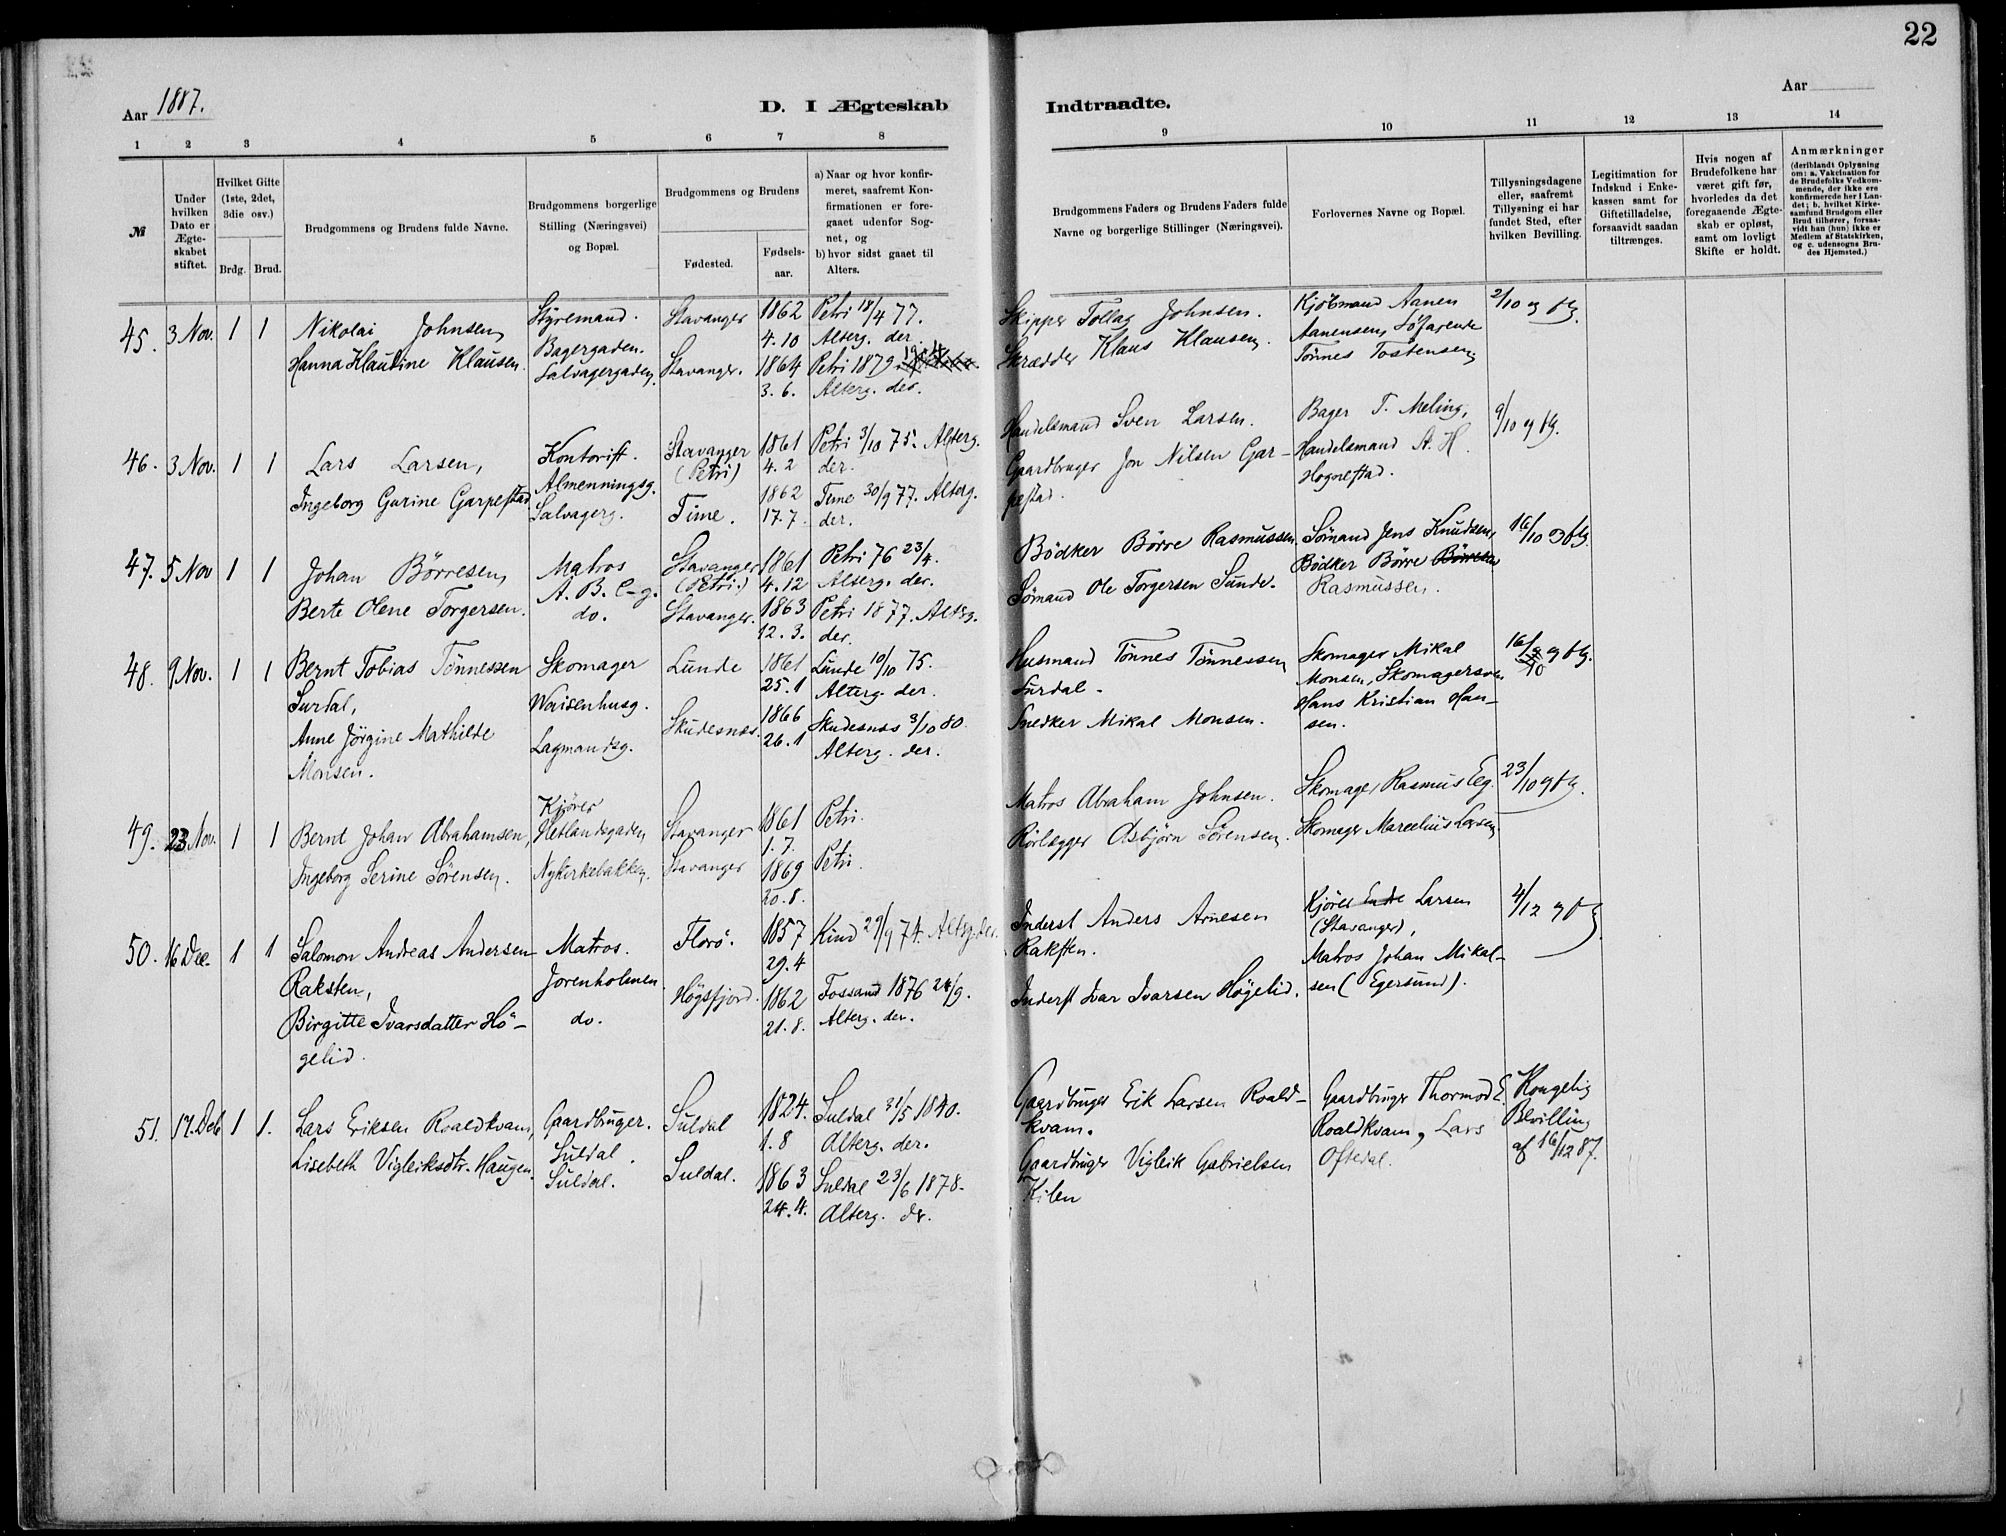 22
Aar 1887.
D. I Ægteskab Indtraadte.
Aar
1 2 3 4 5 6 7 8 9 10 11 12 13 14
№
Under hvilken Dato er Ægte-skabet stiftet.
Hvilket Gifte (1ste, 2det, 3die osv.)
Brdg. Brud.
Brudgommens og Brudens fulde Navne.
Brudgommens borgerlige Stilling (Næringsvei) og Bopæl.
Brudgommens og Brudens
Fødested.
Fødsels-aar.
a) Naar og hvor konfir-meret, saafremt Kon-firmationen er fore-gaaet udenfor Sog-net, og
b) hvor sidst gaaet til Alters.
Brudgommens Faders og Brudens Faders fulde Navne og borgerlige Stillinger (Næringsvei).
Forlovernes Navne og Bopæl.
Tillysningsdagene eller, saafremt Tillysning ei har fundet Sted, efter hvilken Bevilling.
Legitimation for Indskud i Enke-kassen samt for Giftetilladelse, forsaavidt saadan tiltrænges.
Hvis nogen af Brudefolkene har været gift før, hvorledes da det foregaaende Ægte-skab er opløst, samt om lovligt Skifte er holdt.
Anmærkninger (deriblandt Oplysning om: a. Vakcination for de Brudefolks Vedkom-mende, der ikke ere konfirmerede her i Lan-det; b. hvilket Kirke-samfund Brudgom eller Brud tilhører, forsaa-vidt han (hun) ikke er Medlem af Statskirken, og c. udensogns Bru-des Hjemsted.)
45. 3 Nov. 1 1 Nikolai Johnsen, Styremand. Stavanger 1862 Petri 18/4 77.
Bagergaden. 4.10 Alterg. der.
Hanna Klaudine Klausen. Salvagergaden. Stavanger. 1864 Petri 1879 19/4
3.6. Alterg. der.
Skipper Tollag Johnsen. Kjöbmand Aanen 2/10 og flg.
Skrædder Klaus Klausen. Aanensen, Söfarende
Tönnes Tostensen,
46. 3 Nov. 1 1 Lars Larsen, Kontorist. Stavanger 1861 Petri 3/10 75. Alterg.
Almenningsg. (Petri) 4.2 der.
Ingeborg Gurine Garpestad Salvagerg. Time. 1862 Time 30/9 77. Alterg.
17.7. der.
Handelsmand Sven Larsen. Bager T. Meling, 9/10 og flg.
Gaardbruger Jon Nilsen Gar- Handelsmand A. H.
pestad. Hognestad.
47. 5 Nov 1 1 Johan Börresen, Matros Stavanger 1861 Petri 76 23/4.
A. B. C-g. (Petri.) 4.12 Alterg. der.
Berte Olene Torgersen. do. Stavanger. 1863 Petri 1877. Alterg.
12.3. der.
Bödker Börre Rasmussen Sömand Jens Knudsen, 16/10 og flg.
Bödker Börre Börresen
Sömand Ole Torgersen Sunde. Rasmussen.
48. 9 Nov. 1 1 Bernt Tobias Tönnessen Skomager Lunde 1861 Lunde 10/10 75.
Surtal, Waisenhusg. 25.1 Alterg. der.
Anne Jörgine Mathilde Lagmandsg. Skudesnæs. 1866 Skudesnæs 3/10 80.
Monsen. 26.1 Alterg. der.
Husmand Tönnes Tönnessen Skomager Mikal 16/10 og flg.
Surdal. Monsen, Skomagersven
Snedker Mikal Monsen. Hans Kristian Han-
sen.
49. 23 Nov. 1 1 Bernt Johan Abrahamsen, Kjörer Hetlandsgaden, Stavanger 1861 Petri.
1.7.
Ingeborg Serine Sörensen. Nykirkebakken. Stavanger 1869 Petri.
20.8.
Matros Abraham Johnsen. Skomager Rasmus Eeg. 23/10 og flg.
Rörlægger Asbjörn Sörensen. Skomager Marcelius Larsen.
50. 16 Dec. 1 1 Salomon Andreas Andersen Matros. Florö. 1857 Kind 29/9 74. Alterg. der.
Raksten, Jorenholmen. 29.4
Birgitte Ivarsdatter Hö- do. Högsfjord. 1862 Fossand 1876 24/9.
gelid. 21.8. Alterg. der.
Inderst Anders Arnesen Kjörer Endre Larsen 4/12 og flg.
Raksten. (Stavanger),
Matros Johan Mikal-
Inderst Ivar Ivarsen Högelid. sen (Egersund).
51. 17. Dec 1 1. Lars Eriksen Roaldkvam, Gaardbruger. Suldal 1824. Suldal 31/5 1840.
Suldal. 1.8 Alterg. der.
Lisebeth Vigleiksdtr. Haugen. Suldal. Suldal. 1863 Suldal 23/6 1878.
24.4. Alterg. der.
Gaardbruger Erik Larsen Roald- Gaardbruger Thormod E. Kongelig
kvam. Roaldkvam, Lars Bevilling
Gaardbruger Vigleik Gabrielsen Oftedal. af 16/12 87.
Kilen